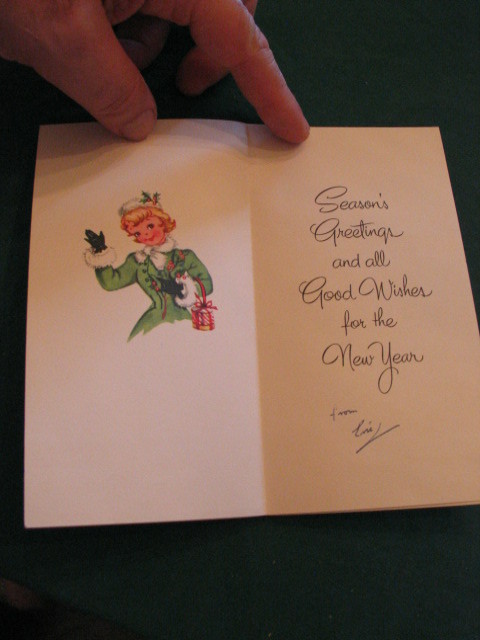 Season's
Greetings
and all
Good Wishes
for the
New Year
from